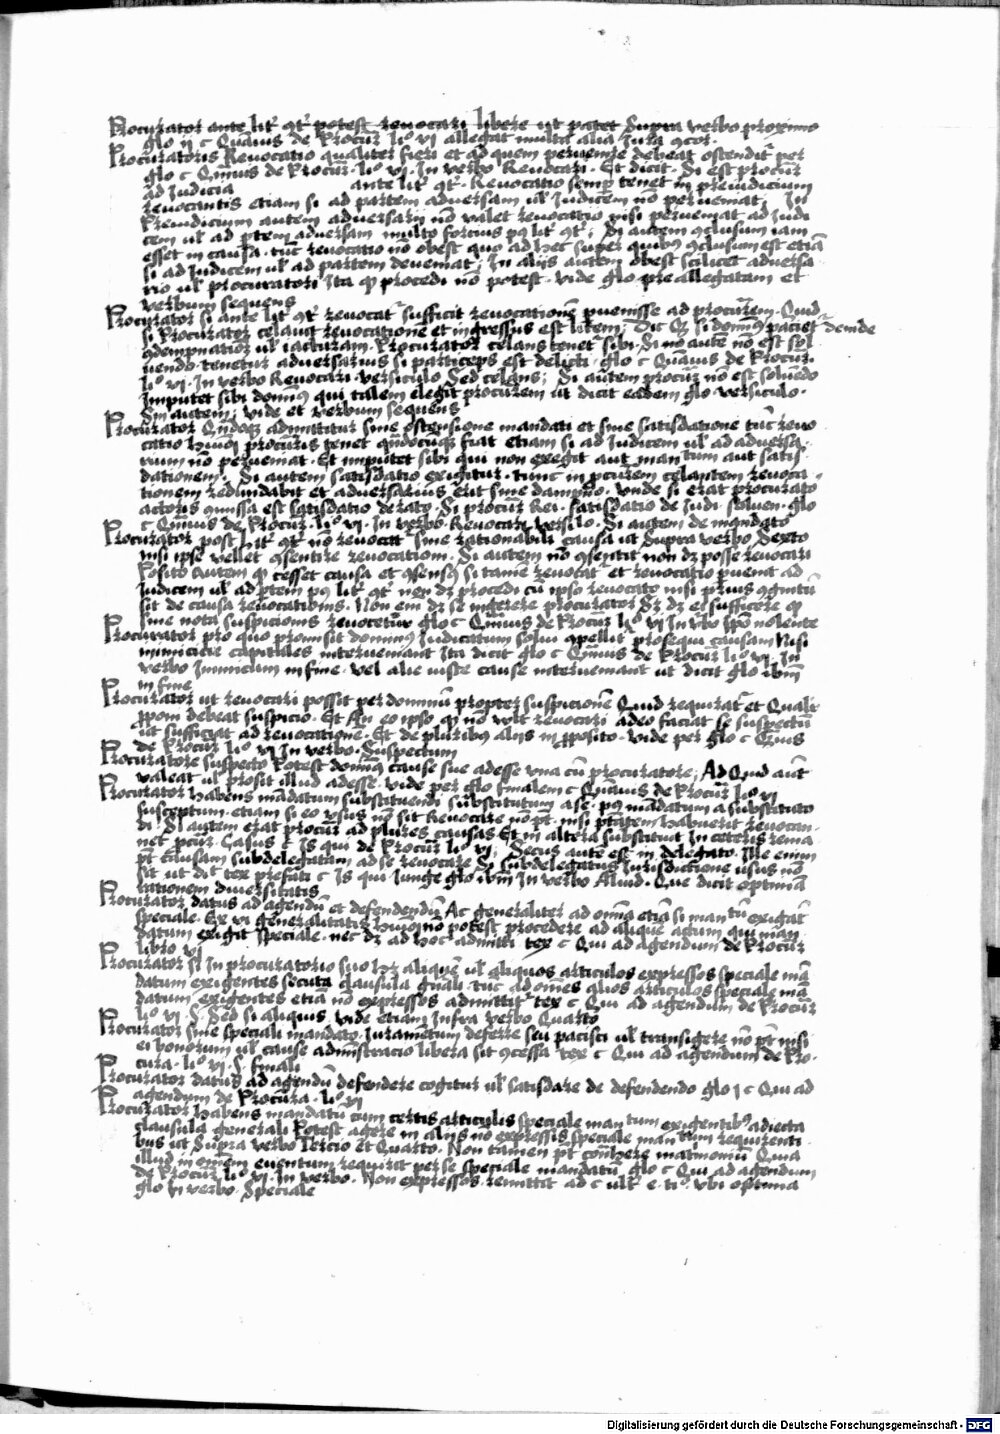 Procurator ante lit' 9t' potest revocari libere ut patet Supra verbo proximo
glo ii c Quāvis de Procur̄ li° vi allegat multa alia Jura 9cor.
Procuratoris Revocatio qualiter fieri et ad quem pervenire debeat ostendit' per
glo c Qm̄vis de Procur̄ li° vi. In verbo Revocari. Et dicit. Si est procur̄
ad Judicia ante lit' 9t'. Revocatio semp̄ tenet in preiudicium
revocantis etiam si ad partem adversam ul' Judicem nō perveniat. In
Preiudicium autem adversarii nō valet revocatio nisi perveniat ad Judi
cem ul' ad p̄tem adversam multo forcius p9 lit' 9t'. Si autem 9clusum iam
esset in causa. tūc revocatio nō obest quo ad hec super quib9 9clusum est etiā
si ad Judicem ul' ad partem deveniat. In aliis autem obest scilicet adversa
rio ul' procuratori Ita q' procedi nō potest. vide glo preallegatam et
verbum sequens
Procurator si ante lit' 9t' revocat' sufficit revocationē p̄venisse ad procur̄em. Quid
si Procurator celavit revocationē et ingressus est litem; Dic q' si domin9 paciet' deinde
9dempnatiōꝫ ul' iacturam. Procurator celans tenet' sibi. Si nō autē nō est sol
vendo. tenetur adversarius si particeps est delicti. glo c Quāvis de Procur̄.
li° vi. In verbo Revocari. versiculo Sed celans; Si autem procur̄ nō est solvēdo
Imputet sibi domin9 qui talem elegit procur̄em ut dicit eadem glo. versiculo.
Sin autem; vide et verbum sequens
Procurator Qn̄doq3 admittitur sine ostensione mandati et sine satisdatione tūc revo
catio hui9 procur̄is tenet qn̄docūq3 fiat etiam si ad Judicem ul' ad adversa
rium nō perveniat. Et imputet sibi qui non exegit aut mantum aut satis
dationem. Si autem satisdatio exigitur. tunc in p̄cur̄em celantem revoca
tionem redundabit et adversarius erit sine dampno. unde si erat procurato
actoris 9missa est satisdatio de rato. Si procur̄ Rei. satisdatio de Judi. solven. glo
c Qm̄vis de Procur̄. li° vi. In verbo. Revocari versi.lo. Si autem de mandato
Procurator post lit' 9t' nō revocat' sine rationabili causa ut Supra verbo Sexto
nisi ipse vellet 9sentire revocationi. Si autem nō 9sentit non dꝫ posse revocari
Posito autem q' cesset causa et 9sens9 si tamē revocat' et revocatio p̄venit ad
Judicem ul' ad p̄tem p9 lit' 9t' non dꝫ procedi cū ipso revocato nisi prius 9gnitū
sit de causa revocationis. Non em̄ dꝫ se ingerere procurator Sꝫ dꝫ ei sufficere q'
sine nota suspicionis revocetur glo c Qm̄vis de Procur̄ li° vi In vbo ip̄o nolente
Procurator pro quo promisit domin9 Judicatum solvi 9pellit' prosequi causam Nisi
inimicicie capitales interveniant Ita dicit glo c Qm̄vis de Procur̄ li° vi. In
verbo Inimicum in fine. vel alie iuste cause interveniant ut dicit glo ibm̄
in fine
Procurator ut revocari possit per dominū propter suspicionē Quid requirat' et Qualit'
p̄poni debeat suspicio. Et An eo ipso q' nō vult revocari adeo faciat se suspectū
ut sufficiat ad revocationē. Et de plurib9 aliis in p̄posito. vide per glo c Qm̄vis
de Procur̄ li° vi In verbo. Suspectum
Procuratore suspecto Potest domin9 cause sue adesse una cū procuratore; Ad Quid aut'
valeat ul' prosit illud adesse. vide per glo finalem c Quāvis de Procur̄ li° vi
Procurator habens mādatum substituendi substitutum a se. p9 mādatum a substituto
susceptum. etiam si eo usus nō sit Revocare nō pt'. nisi p̄tatem habuerit revocan
di. Si autem erat procur̄ ad plures causas Et in altera substituit In ceteris rema
net p̄cur̄. Casus c Is qui de Procur̄ li° vi; Secus aute est in delegato. Ille enim
pt' causam subdelegatam ad se revocare Si subdelegatus Jurisdictione usus nō
sit ut dic' tex prefati c Is qui Junge glo ibm̄ In verbo Aliud. Que dicit optimā
rationem diversitatis
Procurator datus ad agendū et defendendū Ac generaliter ad omīa etiā si mantū exigat'
speciale. Ex vi generalitatis hui9 nō potest procedere ad aliquē actum qui mān
datum exigit speciale. nec dꝫ ad hoc admitti tex c Qui ad agendum de Procur̄
libro vi
Procurator si In procuratorio suo hꝫ aliquē ul' aliquos articulos expressos speciale mā
datum exigentes secuta clausula gn̄ali. tūc ad om̄es alios articulos speciale mā
datum exigentes etiā nō expressos admittit' tex c Qui ad agendum de Procur̄
li° vi. §. Sed si aliquis. vide etiam Infra verbo Quarto
Procurator sine speciali mandato. Juramētum deferre seu pacisci ul' transigere nō pt' nisi
ei bonorum ul' cause administracio libera sit 9cessa tex c Qui ad agendum de Pro.
cura. li° vi. §. finali
Procurator datus ad agendū defendere cogitur ul' satisdare de defendendo glo i c Qui ad
agendum de Procura. li° vi
Procurator habens mandatū cum certis articulis speciale mantum exigentib9 adiecta
clausula generali Potest agere in aliis nō expressis speciale mantum requirenti
bus ut Supra verbo Tercio et Quarto. Non tamen pt' 9trahere matrimoniū Quia
illud in om̄em eventum requirit per se speciale mandatū glo c Qui ad agendum
de Procur̄ li° vi. In verbo. Non expressos. remittit ad c ult' e. ti°. ubi optima
glo In verbo. Speciale
Digitalisierung gefördert durch die Deutsche Forschungsgemeinschaft - DFG